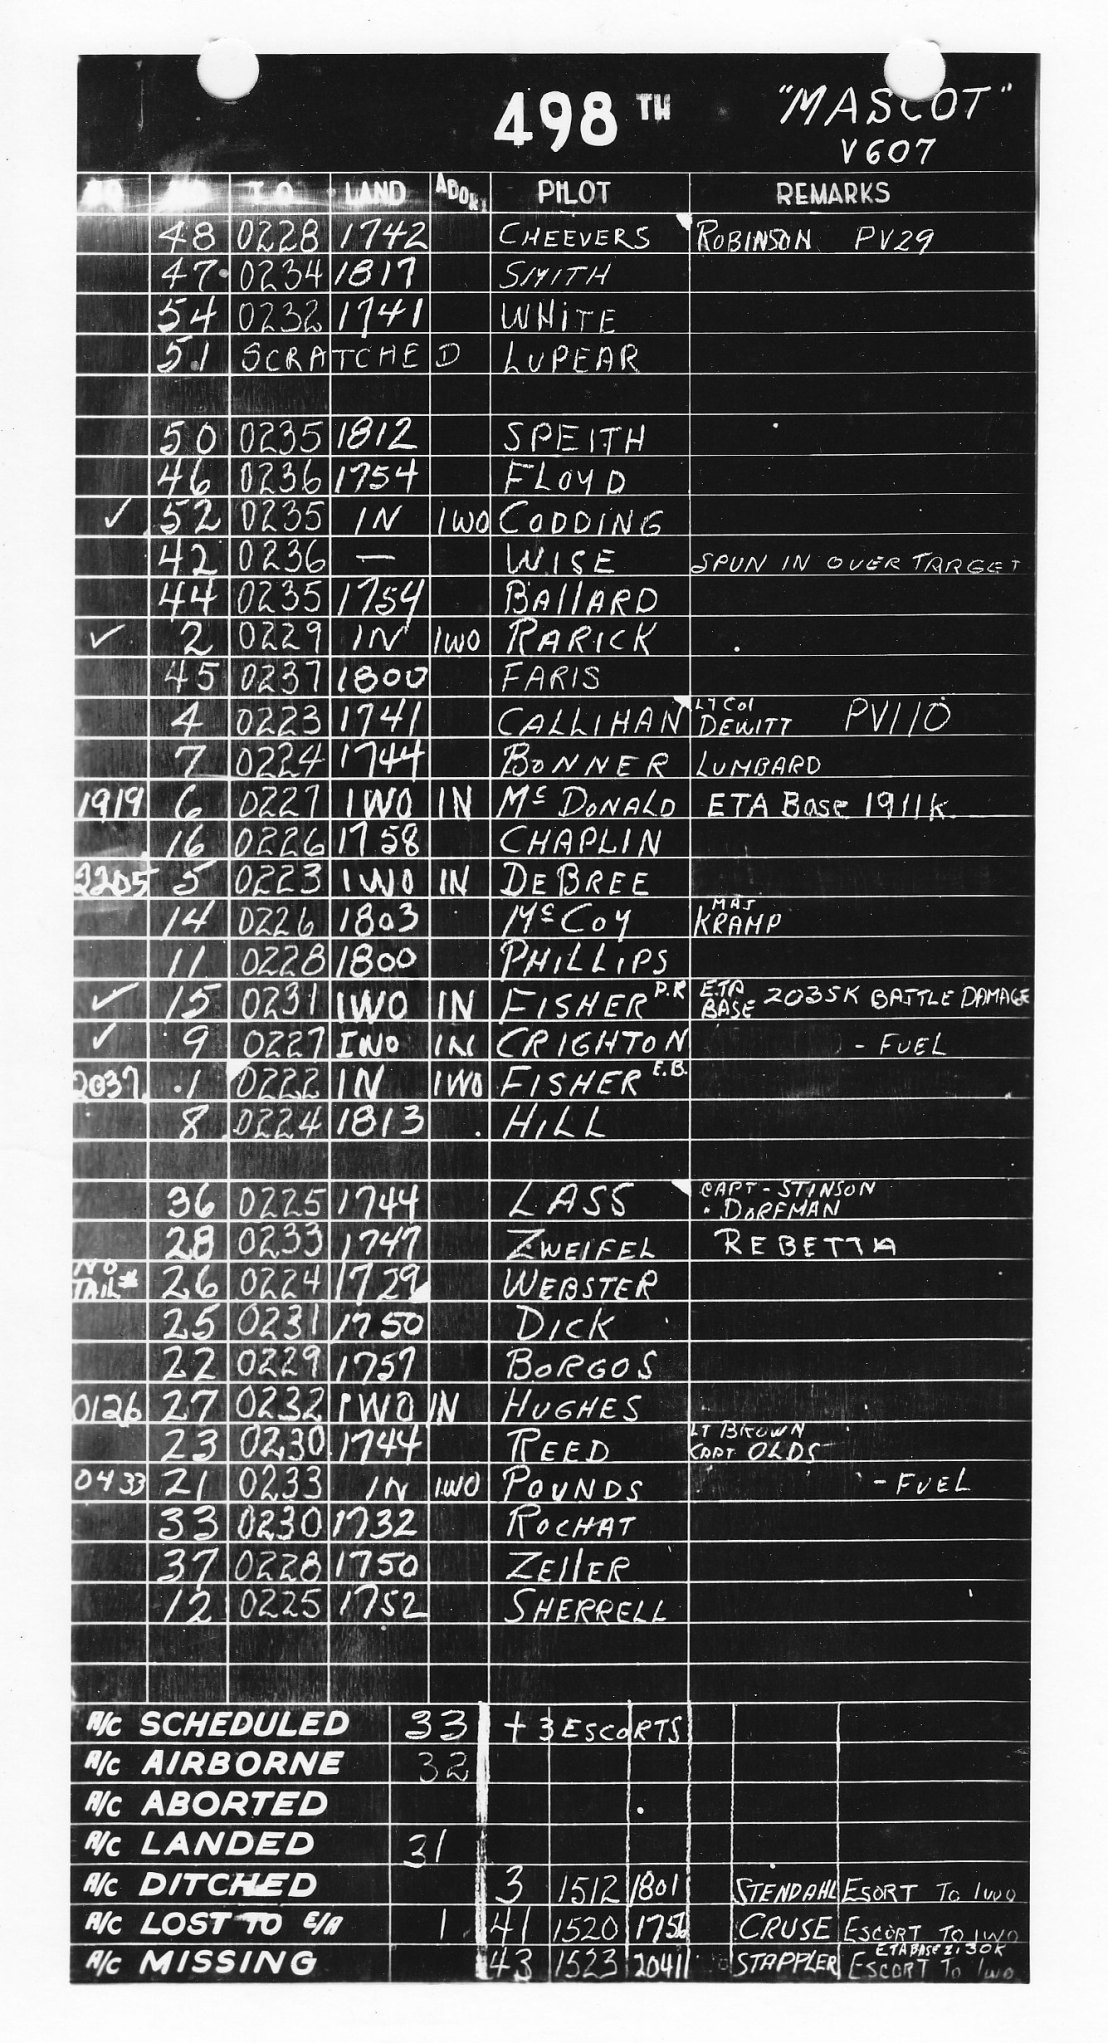 498TH "MASCOT"
V607
T.O. LAND ABORT PILOT REMARKS
48 0228 1742 CHEEVERS ROBINSON PV29
47 0234 1817 SMITH
54 0232 1741 WHITE
51 SCRATCHED LUPEAR
50 0235 1812 SPEITH
46 0236 1754 FLOYD
✓ 52 0235 IN IWO CODDING
42 0236 — WISE SPUN IN OVER TARGET
44 0235 1754 BAllARD
✓ 2 0229 IN IWO RARICK
45 0237 1800 FARIS
4 0223 1741 CALLIHAN LT COl DEWITT PV110
7 0224 1744 BONNER LUMBARD
1919 6 0227 IWO IN McDONALD ETA Base 1911K
16 0226 1758 CHAPLIN
2205 5 0223 IWO IN DEBREE
14 0226 1803 McCOY MAJ KRAMP
11 0228 1800 PHILLIPS
✓ 15 0231 IWO IN FISHER P.R ETA BASE 2035K BATTLE DAMAGE
✓ 9 0227 IWO IN CRIGHTON - FUEL
2037 1 0222 IN IWO FISHER E.B.
8 0224 1813 HILL
36 0225 1744 LASS CAPT - STINSON
DORFMAN
28 0233 1747 ZWEIFEL REBETTA
NO TAIL* 26 0224 1729 WEBSTER
25 0231 1750 DICK
22 0229 1757 BORGOS
0126 27 0232 IWO IN HUGHES
23 0230 1744 REED LT BROWN
CAPT OLDS
0433 21 0233 IN IWO POUNDS - FUEL
33 0230 1732 ROCHAT
37 0228 1750 ZEllER
12 0225 1752 SHERRELL
A/C SCHEDULED 33 + 3 ESCORTS
A/C AIRBORNE 32
A/C ABORTED
A/C LANDED 31
A/C DITCHED 3 1512 1801 STENDAHL ESORT TO IWO
A/C LOST TO E/A 1 41 1520 1756 CRUSE ESCORT TO IWO
A/C MISSING 43 1523 2041 STAPPLER ETA BASE 2130K ESCORT TO IWO